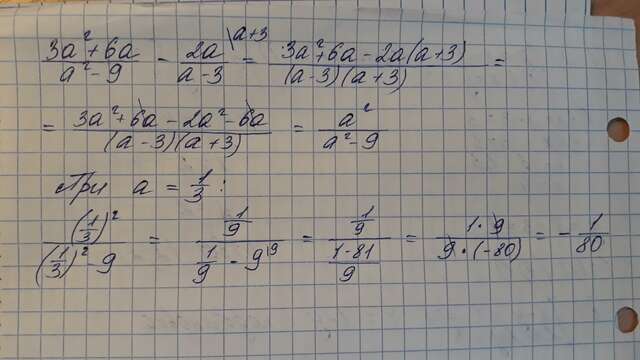 (3a²+6a)/(a²-9) - 2a/(a-3) \a+3 = (3a²+6a-2a(a+3))/((a-3)(a+3)) =
= (3a²+6a-2a²-6a)/((a-3)(a+3)) = a²/(a²-9)
При a = 1/3 :
(1/3)²/((1/3)²-9) = (1/9)/(1/9 - 9\9) = (1/9)/((1-81)/9) = (1·9)/(9·(-80)) = -1/80